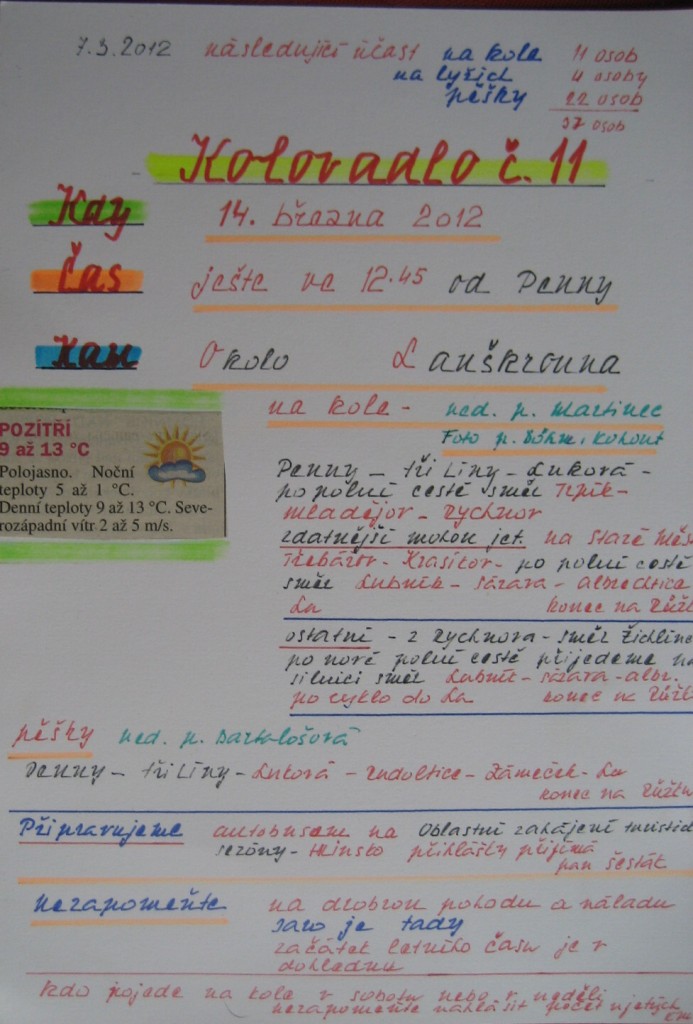 7.3.2012 následující účast na kole 11 osob
na lyžích 4 osoby
pěšky 22 osob
37 osob
Kolovadlo č. 11
Kdy 14. března 2012
Čas ješte ve 12.45 od Penny
Kam Okolo Lanškrouna
na kole - ved. p. Martinec
Foto p. Böhm, Kohout
POZÍTŘÍ
9 až 13 °C
Polojasno. Noční
teploty 5 až 1 °C.
Denní teploty 9 až 13 °C. Seve-
rozápadní vítr 2 až 5 m/s.
Penny - tři Líny - Luková -
po polní cestě směr Trpík-
mladějov - Rychnov
zdatnější mohou jet. na staré Měs
Třebářov - Krasíkov - po polní cestě
směr Lubník - sázava - albrechtice
La konec na Růžk
ostatní - z Rychnova - směr Židlinc
po nové polní cestě přijedeme na
silnici směr Lubník - sázava - albr.
po cyklo do La konec na Růžk
pěšky ved. p. Bartošová
Penny - tři Líny - Luková - Rudoltice - Zámeček - La
konec na Růžk
Připravujeme autobusem na Oblastní zahájení turistic
sezóny - Hlinsko přihlášky přijímá
pan šesták
nezapomeňte na dobrou pohodu a náladu
Jaro je tady
začátek letního času je v
dohlednu
kdo pojede na kole v sobotu nebo v neděli
nezapomeňte nahlásit počet ujetých km